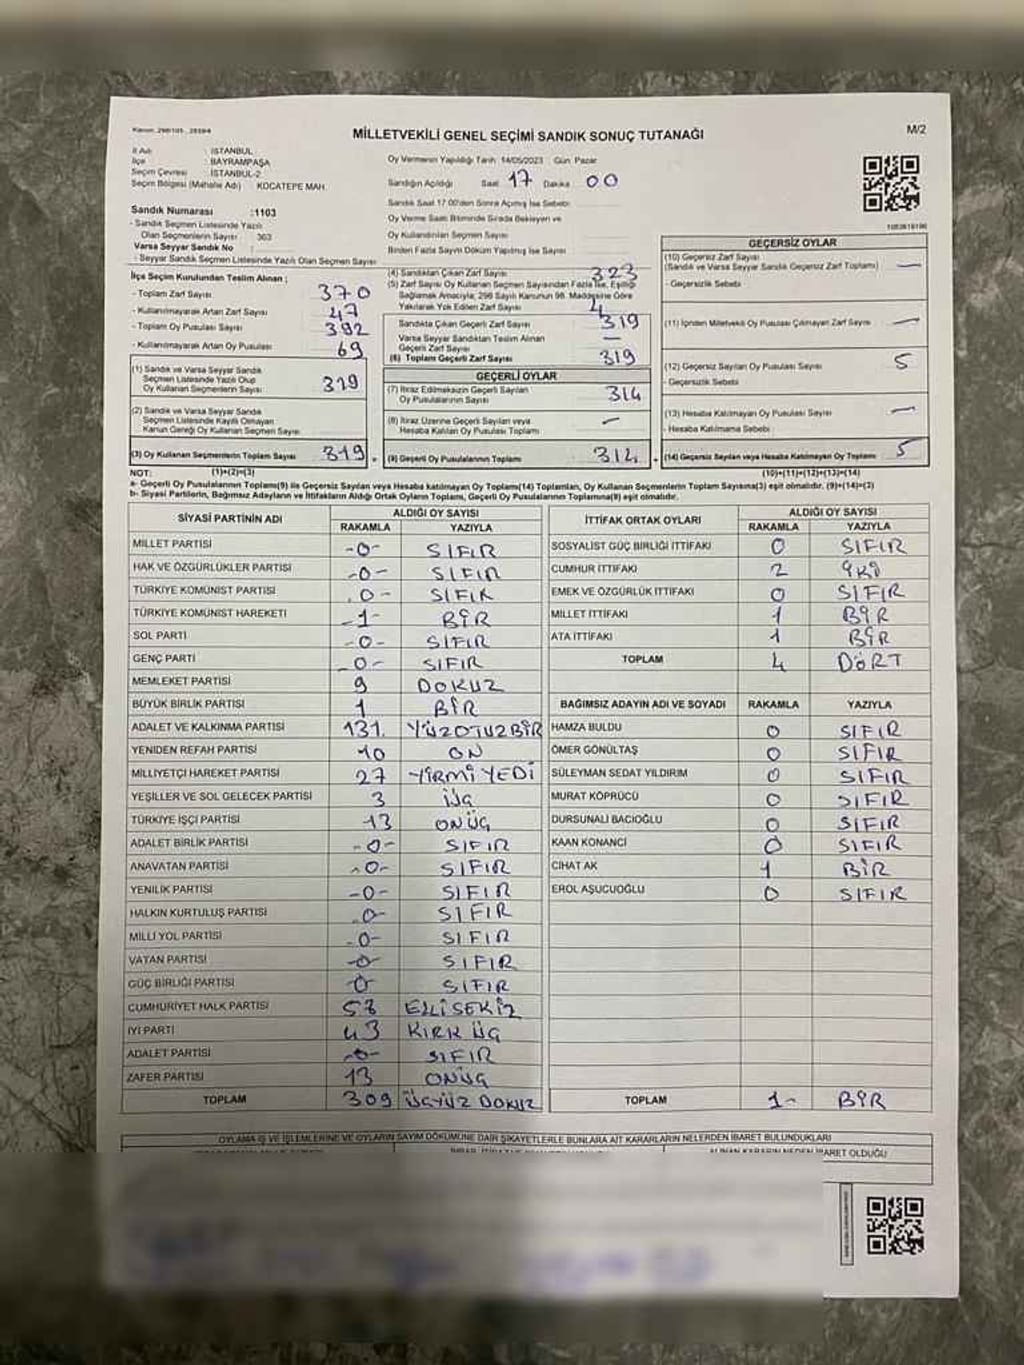 MİLLETVEKİLİ GENEL SEÇİMİ SANDIK SONUÇ TUTANAĞI
M/2
İl Adı : İSTANBUL
İlçe : BAYRAMPAŞA
Seçim Çevresi : İSTANBUL-2
Seçim Bölgesi (Mahalle Adı) : KOCATEPE MAH.
Oy Vermenin Yapıldığı Tarih 14/05/2023 Gün Pazar
Sandığın Açıldığı Saat 17 Dakika 00
Sandık Saat 17:00'den Sonra Açılmış İse Sebebi
Oy Verme Saati Bitiminde Sırada Bekleyen ve
Oy Kullandırılan Seçmen Sayısı
Birden Fazla Sayım Döküm Yapılmış İse Sayısı
Sandık Numarası :1103
- Sandık Seçmen Listesinde Yazılı
Olan Seçmenlerin Sayısı : 363
Varsa Seyyar Sandık No :
- Seyyar Sandık Listesinde Yazılı Olan Seçmen Sayısı
İlçe Seçim Kurulundan Teslim Alınan ;
- Toplam Zarf Sayısı 370
- Kullanılmayarak Artan Zarf Sayısı 47
- Toplam Oy Pusulası Sayısı 392
- Kullanılmayarak Artan Oy Pusulası 69
(1) Sandık ve Varsa Seyyar Sandık
Seçmen Listesinde Yazılı Olup
Oy Kullanan Seçmenlerin Sayısı 319
(2) Sandık ve Varsa Seyyar Sandık
Seçmen Listesinde Kayıtlı Olmayan
Kanun Gereği Oy Kullanan Seçmen Sayısı
(3) Oy Kullanan Seçmenlerin Toplam Sayısı 319
(4) Sandıktan Çıkan Zarf Sayısı 323
(5) Zarf Sayısı Oy Kullanan Seçmen Sayısından Fazla İse, Eşitliği
Sağlamak Amacıyla; 298 Sayılı Kanunun 98. Maddesine Göre
Yakılarak Yok Edilen Zarf Sayısı 4
Sandıkta Çıkan Geçerli Zarf Sayısı 319
Varsa Seyyar Sandıktan Teslim Alınan
Geçerli Zarf Sayısı —
(6) Toplam Geçerli Zarf Sayısı 319
GEÇERLİ OYLAR
(7) İtiraz Edilmeksizin Geçerli Sayılan
Oy Pusulalarının Sayısı 314
(8) İtiraz Üzerine Geçerli Sayılan veya
Hesaba Katılan Oy Pusulası Toplamı —
(9) Geçerli Oy Pusulalarının Toplamı 314
GEÇERSİZ OYLAR
(10) Geçersiz Zarf Sayısı
(Sandık ve Varsa Seyyar Sandık Geçersiz Zarf Toplamı) —
- Geçersizlik Sebebi
(11) İçinden Milletvekili Oy Pusulası Çıkmayan Zarf Sayısı —
(12) Geçersiz Sayılan Oy Pusulası Sayısı 5
- Geçersizlik Sebebi
(13) Hesaba Katılmayan Oy Pusulası Sayısı —
- Hesaba Katılmama Sebebi
(14) Geçersiz Sayılan veya Hesaba Katılmayan Oy Toplamı 5
NOT: (1)+(2)=(3) (10)+(11)+(12)+(13)=(14)
a- Geçerli Oy Pusulalarının Toplamı(9) ile Geçersiz Sayılan veya Hesaba katılmayan Oy Toplamı(14) Toplamları, Oy Kullanan Seçmenlerin Toplam Sayısına(3) eşit olmalıdır. (9)+(14)=(3)
b- Siyasi Partilerin, Bağımsız Adayların ve İttifakların Aldığı Ortak Oyların Toplamı, Geçerli Oy Pusulalarının Toplamına(9) eşit olmalıdır.
SİYASİ PARTİNİN ADI ALDIĞI OY SAYISI
RAKAMLA YAZIYLA
MİLLET PARTİSİ -0- SIFIR
HAK VE ÖZGÜRLÜKLER PARTİSİ -0- SIFIR
TÜRKİYE KOMÜNİST PARTİSİ -0- SIFIR
TÜRKİYE KOMÜNİST HAREKETİ -1- BİR
SOL PARTİ -0- SIFIR
GENÇ PARTİ -0- SIFIR
MEMLEKET PARTİSİ 9 DOKUZ
BÜYÜK BİRLİK PARTİSİ 1 BİR
ADALET VE KALKINMA PARTİSİ 131 YÜZOTUZBİR
YENİDEN REFAH PARTİSİ 10 ON
MİLLİYETÇİ HAREKET PARTİSİ 27 YİRMİ YEDİ
YEŞİLLER VE SOL GELECEK PARTİSİ 3 ÜÇ
TÜRKİYE İŞÇİ PARTİSİ 13 ONÜÇ
ADALET BİRLİK PARTİSİ -0- SIFIR
ANAVATAN PARTİSİ -0- SIFIR
YENİLİK PARTİSİ -0- SIFIR
HALKIN KURTULUŞ PARTİSİ -0- SIFIR
MİLLİ YOL PARTİSİ -0- SIFIR
VATAN PARTİSİ -0- SIFIR
GÜÇ BİRLİĞİ PARTİSİ 0 SIFIR
CUMHURİYET HALK PARTİSİ 58 ELLİSEKİZ
İYİ PARTİ 43 KIRK ÜÇ
ADALET PARTİSİ -0- SIFIR
ZAFER PARTİSİ 13 ONÜÇ
TOPLAM 309 ÜÇYÜZ DOKUZ
İTTİFAK ORTAK OYLARI ALDIĞI OY SAYISI
RAKAMLA YAZIYLA
SOSYALİST GÜÇ BİRLİĞİ İTTİFAKI 0 SIFIR
CUMHUR İTTİFAKI 2 İKİ
EMEK VE ÖZGÜRLÜK İTTİFAKI 0 SIFIR
MİLLET İTTİFAKI 1 BİR
ATA İTTİFAKI 1 BİR
TOPLAM 4 DÖRT
BAĞIMSIZ ADAYIN ADI VE SOYADI RAKAMLA YAZIYLA
HAMZA BULDU 0 SIFIR
ÖMER GÖNÜLTAŞ 0 SIFIR
SÜLEYMAN SEDAT YILDIRIM 0 SIFIR
MURAT KÖPRÜCÜ 0 SIFIR
DURSUNALİ BACIOĞLU 0 SIFIR
KAAN KONANCİ 0 SIFIR
CİHAT AK 1 BİR
EROL AŞUCUOĞLU 0 SIFIR
TOPLAM 1- BİR
OYLAMA İŞ VE İŞLEMLERİNE VE OYLARIN SAYIM DÖKÜMÜNE DAİR ŞİKAYETLERLE BUNLARA AİT KARARLARIN NELERDEN İBARET BULUNDUKLARI